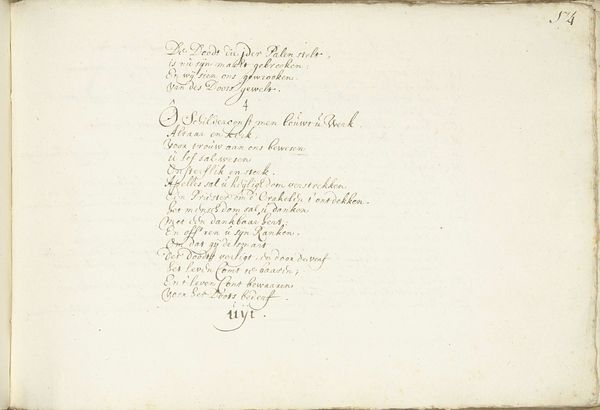 174
De Doodt die jder Palen stelt,
is nu sijn macht gebrooken,
En wij sien ons gewrooken
Van des Doots gewelt.
4
O Schilderconst men bouwt u Werk
Altaar en kerk.
Voor trouw aan ons bewesen
u lof sal wesen
Onsterflik en sterk.
Apelles sal u heyligdom verstrekken
Een Priester om d'Orakelen t'ontdekken.
Het menschdom sal u danken
Met een dankbaar hert,
En off'ren u sijn Ranken
Om dat gij de
der Doodt verligt, en door de verf
het leven Comt te baaren,
En t leven Cont bewaaren
Voor het Doots bederf.
uijt.